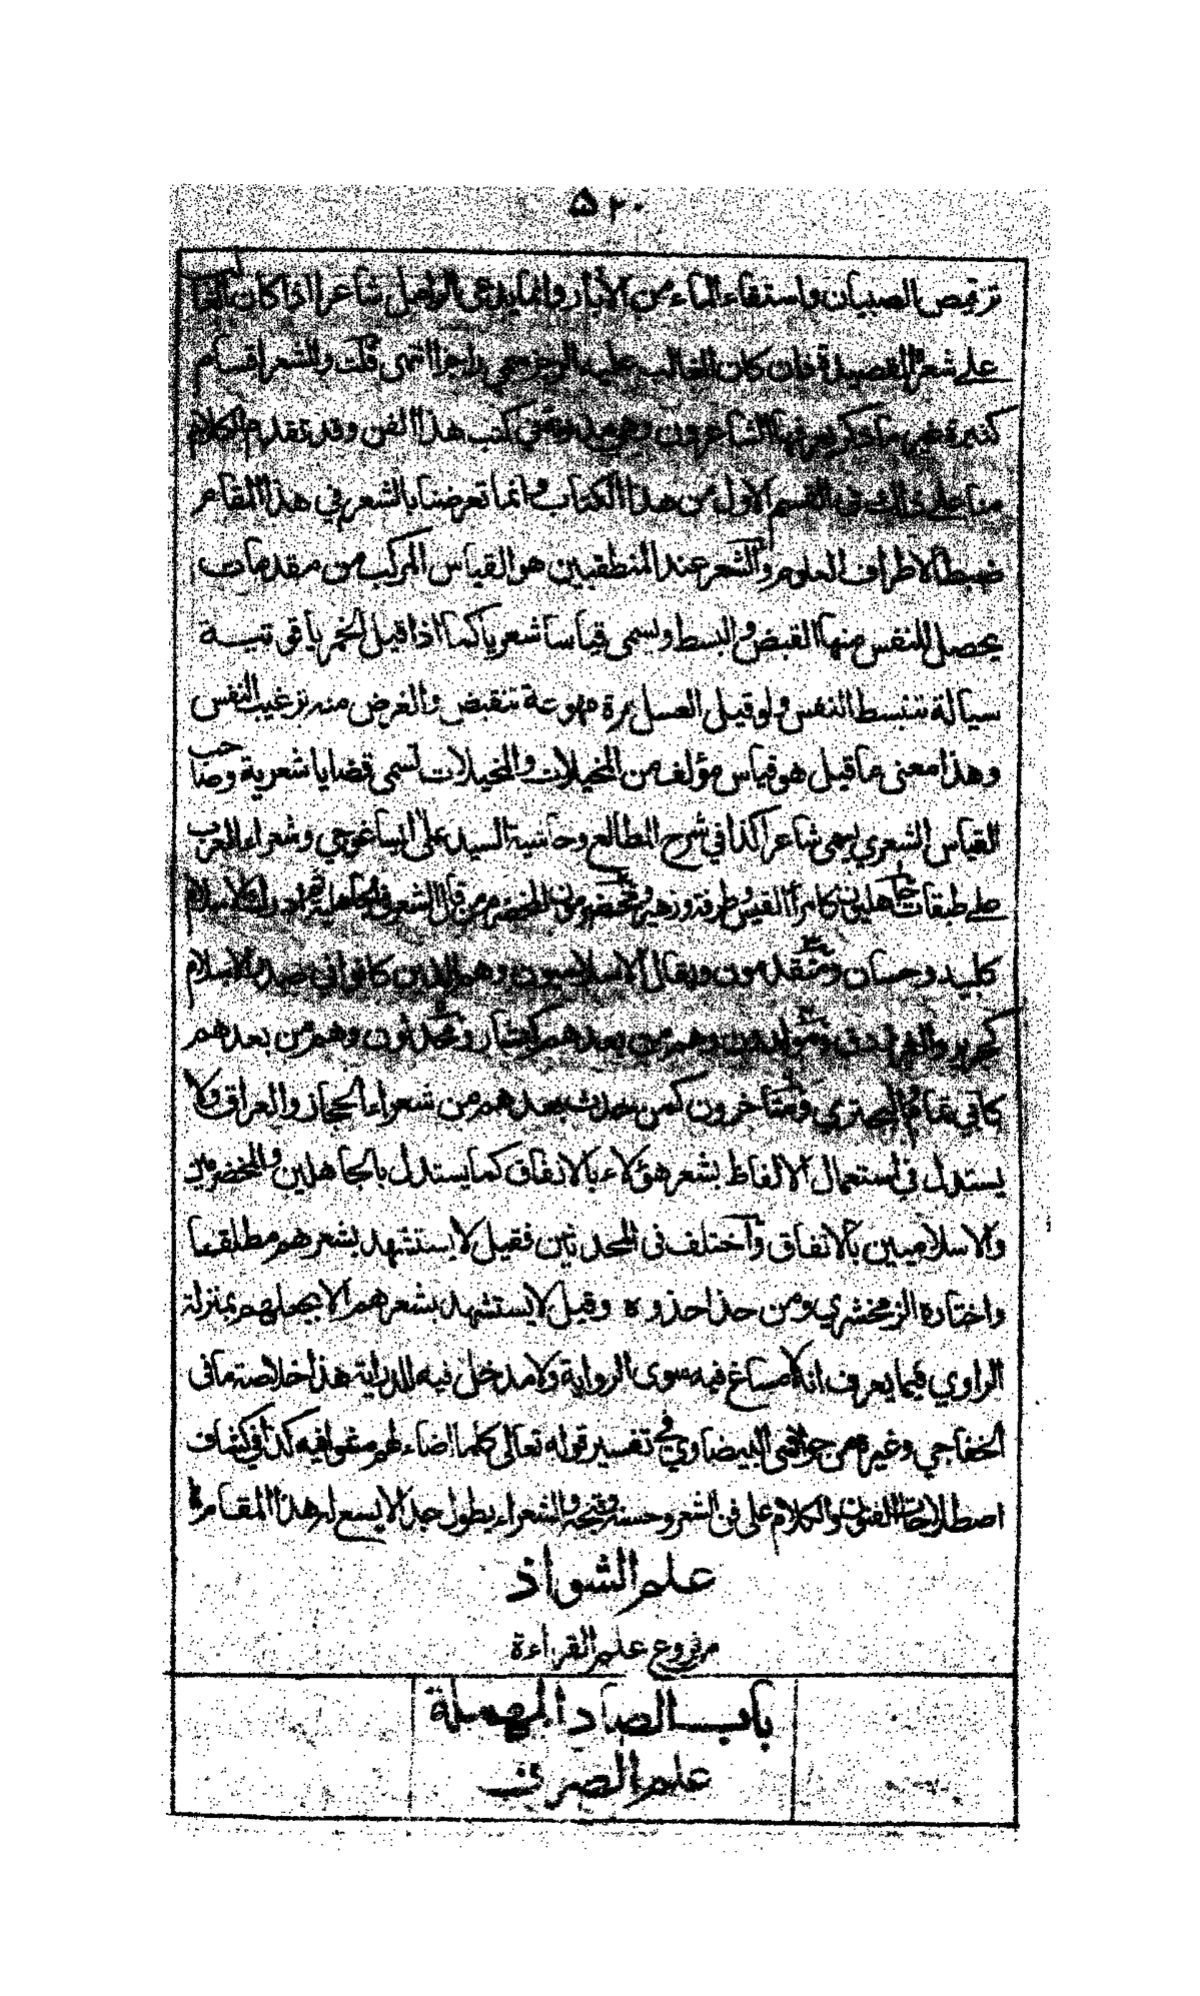 ۵۲۰
ترقيص الصبيان واستقاء الماء من الآبار وانما يدعى الراجل شاعرا اذا كان الغالب
على شعره القصيدة فان كان الغالب عليه الرجز سمي راجزا انتهى قلت وللشعر اقسام
كثيرة غير ما ذكر يعرفها الشاعرون وهي مدونة في كتب هذا الفن وقد تقدم الكلام
منا على ذلك في القسم الاول من هذا الكتاب وانما تعرضنا بالشعر في هذا المقام
ضبطا لاطراف العلوم والشعر عند المنطقيين هو القياس المركب من مقدمات
يحصل للنفس منها القبض والبسط ويسمى قياسا شعريا كما اذا قيل الخمر ياقوتية
سيالة تنبسط النفس ولو قيل العسل مرة مهوعة تنقبض والغرض منه ترغيب النفس
وهذا معنى ما قيل هو قياس مؤلف من المخيلات والمخيلات تسمى قضايا شعرية وصاحب
القياس الشعري يسمى شاعرا كذا في شرح المطالع وحاشية السيد على ايساغوجي وشعراء العرب
على طبقات جاهليون كامرأ القيس وطرفة وزهير ومخضرمون المخضرم من قال الشعر في الجاهلية ثم ادرك الاسلام
كلبيد وحسان ومتقدمون ويقال الاسلاميون وهم الذين كانوا في صدر الاسلام
كجرير والفرزدق ومولدون وهم من بعدهم كبشار ومحدثون وهم من بعدهم
كابي تمام والبحتري ومتأخرون كمن حدث بعدهم من شعراء الحجاز والعراق ولا
يستدل في استعمال الالفاظ بشعر هؤلاء بالاتفاق كما يستدل بالجاهلين والمخضرمين
والاسلاميين بالاتفاق واختلف في المحدثين فقيل لا يستشهد بشعرهم مطلقا
واختاره الزمخشري ومن حذا حذوه وقيل لا يستشهد بشعرهم الا بجعلهم بمنزلة
الراوي فيما يعرف انه لا مساغ فيه سوى الرواية ولا مدخل فيه للدراية هذا خلاصة ما في
الخفاجي وغيره من حواشي البيضاوي في تفسير قوله تعالى كلما اضاء لهم مشوا فيه كذا في كشاف
اصطلاحات الفنون والكلام على فن الشعر وحسنه وقبحه والشعراء يطول جدا لا يسع له هذا المقام
علم الشواذ
من فروع علم القراءة
باب الصاد المهملة
علم الصرف